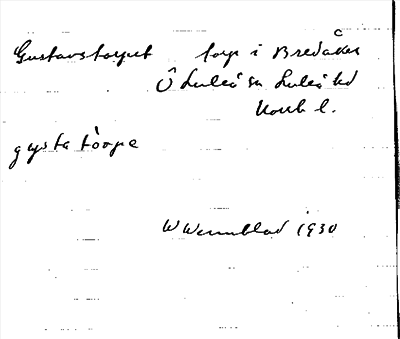 Gustavstorpet torp i Bredåker
Ö Luleå sn Luleå td
Norrb l.
gusta tòrpe
W Wennblad 1930